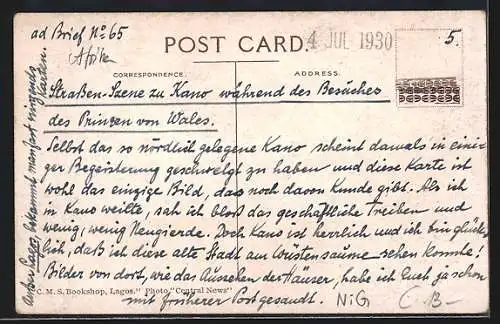 ad Brief No 65
Afrika
POST CARD.
4 JUL 1930
5.
CORRESPONDENCE.
ADDRESS.
Straßen-Szene zu Kano während des Besuches
des Prinzen von Wales.
Selbst das so nördlich gelegene Kano scheint damals in eini-
ger Begeisterung geschwelgt zu haben und diese Karte ist
wohl das einzige Bild, das noch davon Kunde gibt. Als ich
in Kano weilte, sah ich bloß das geschäftliche Treiben und
wenig, wenig Neugierde. Doch Kano ist herrlich und ich bin glück-
lich, daß ich diese alte Stadt am Wüstensaume sehen konnte!
Bilder von dort, wie das Aussehen der Häuser, habe ich Euch ja schon
mit früherer Post gesandt.
"C. M. S. Bookshop, Lagos." Photo "Central News"
NiG
C B-
Außer Lagos bekommt man fast nirgends
Karten.